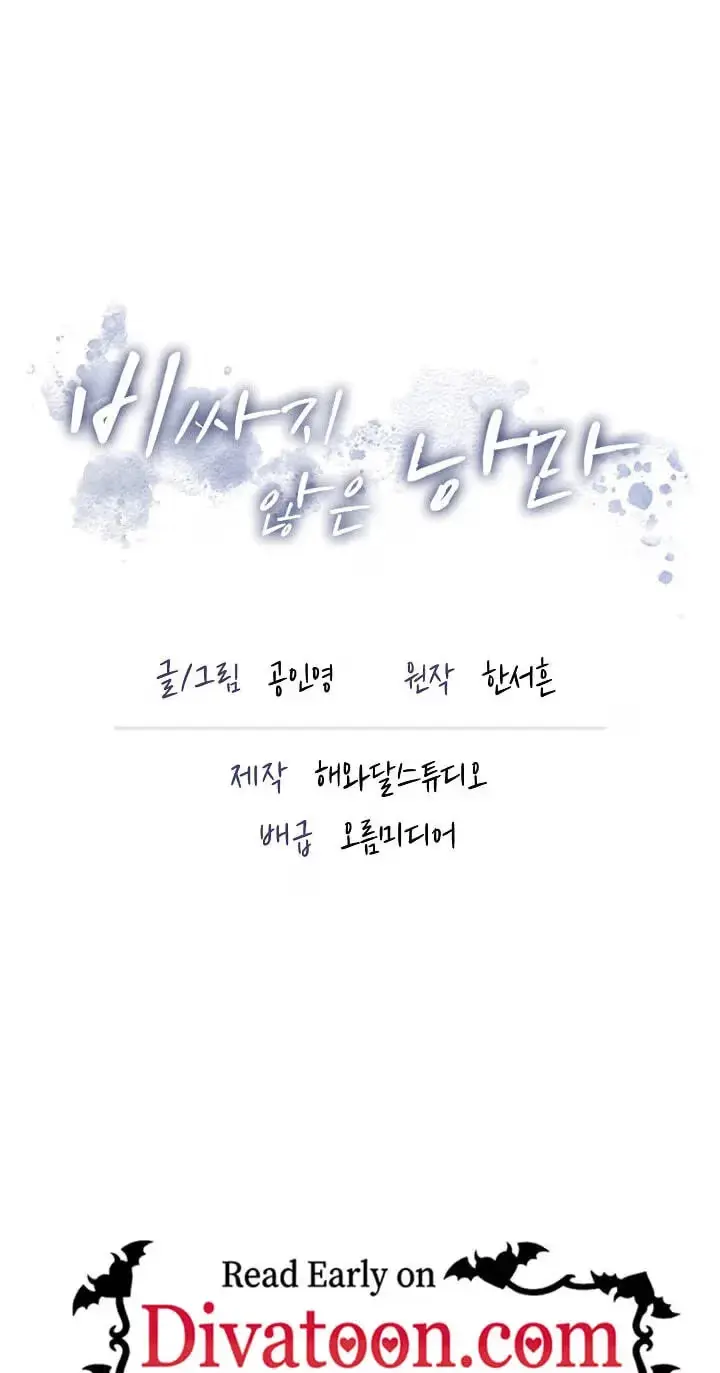 비싸지
않은 낭만
글/그림 공인영 원작 한서흔
제작 해와달스튜디오
배급 오름미디어
Read Early on
Divatoon.com